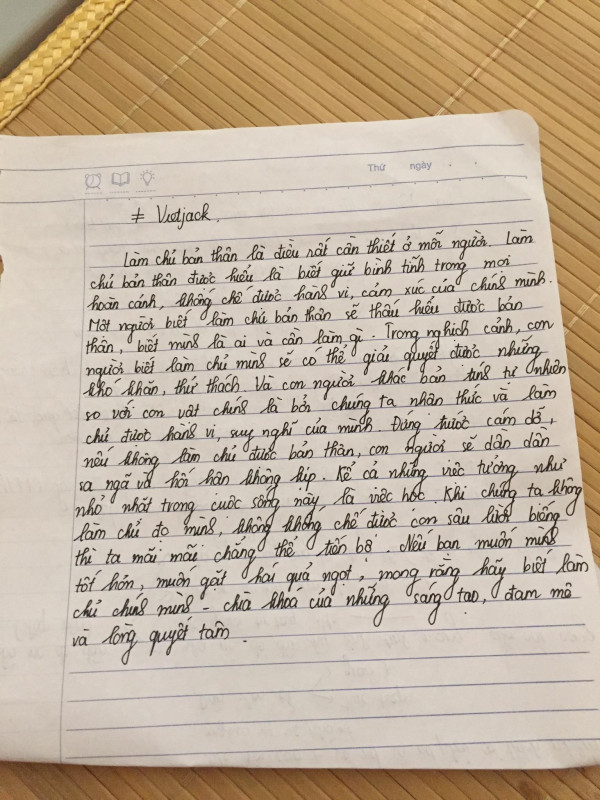 Thứ ngày
# Vietjack.
Làm chủ bản thân là điều rất cần thiết ở mỗi người. Làm
chủ bản thân được hiểu là biết giữ bình tĩnh trong mọi
hoàn cảnh, khống chế được hành vi, cảm xúc của chính mình.
Một người biết làm chủ bản thân sẽ thấu hiểu được bản
thân, biết mình là ai và cần làm gì. Trong nghịch cảnh, con
người biết làm chủ mình sẽ có thể giải quyết được những
khó khăn, thử thách. Và con người khác bản tính tự nhiên
so với con vật chính là bởi chúng ta nhận thức và làm
chủ được hành vi, suy nghĩ của mình. Đứng trước cám dỗ,
nếu không làm chủ được bản thân, con người sẽ dần dần
sa ngã và hối hận không kịp. Kể cả những việc tưởng như
nhỏ nhất trong cuộc sống này, là việc học. Khi chúng ta không
làm chủ đo mình, không khống chế được con sâu lười biếng
thì ta mãi mãi chẳng thể tiến bộ. Nếu bạn muốn mình
tốt hơn, muốn gặt hái quả ngọt, mong rằng hãy biết làm
chủ chính mình - chìa khoá của những sáng tạo, đam mê
và lòng quyết tâm.